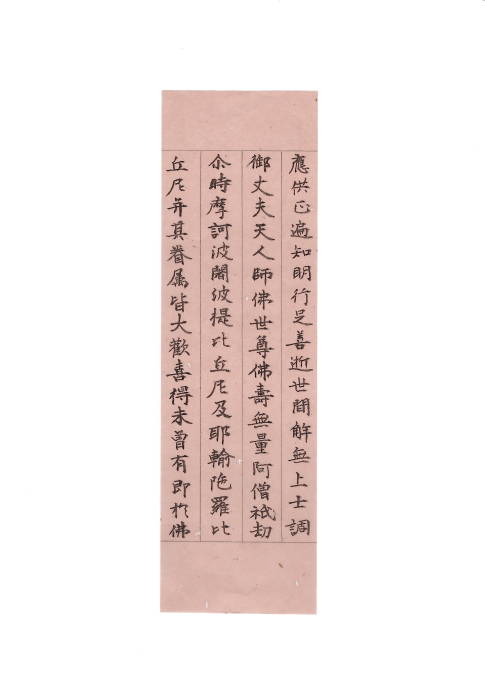 應供正遍知明行足善逝世間解無上士調
御丈夫天人師佛世尊佛壽無量阿僧祇劫
尒時摩訶波闍波提比丘尼及耶輸陁羅比
丘尼并其眷属皆大歡喜得未曾有即於佛